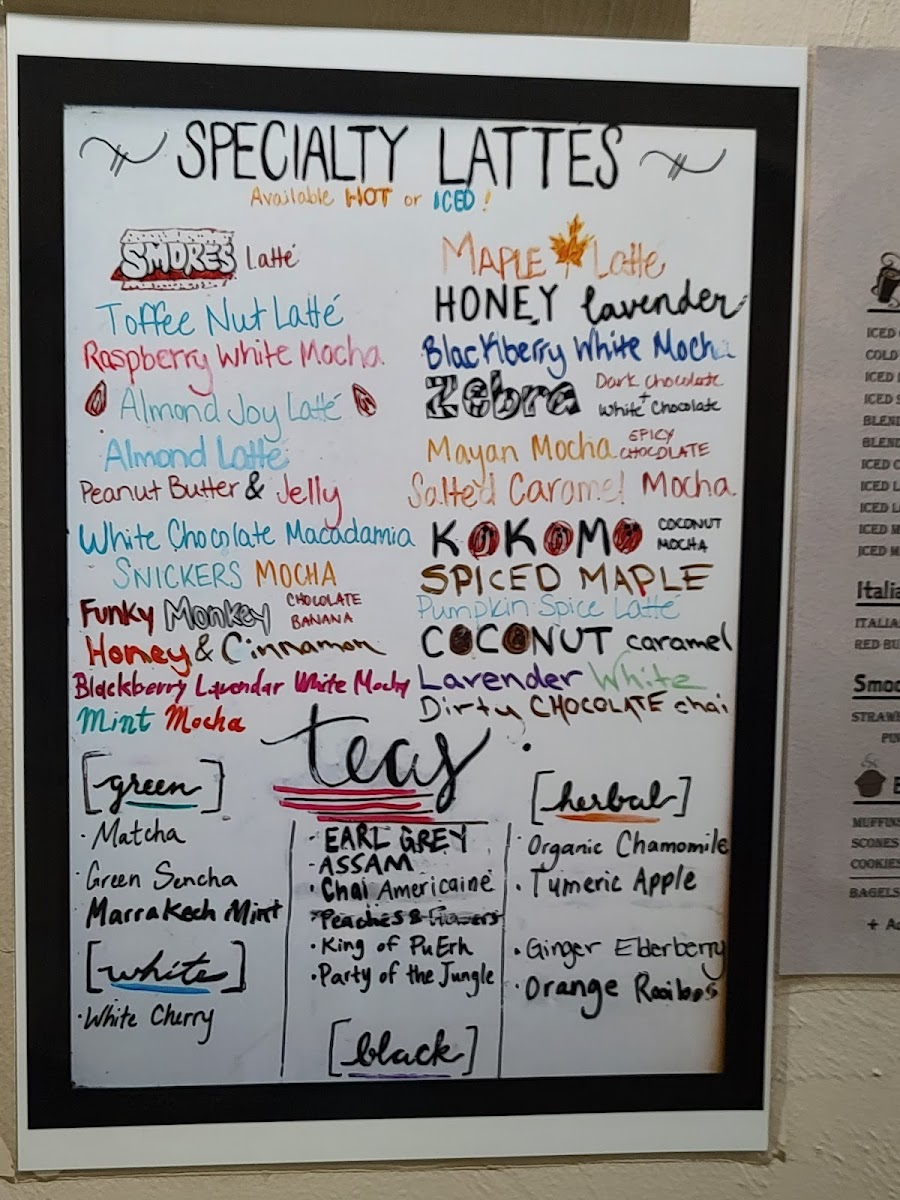 SPECIALTY LATTÉS
Available HOT or ICED!
SMORES Latté
Toffee Nut Latté
Raspberry White Mocha
Almond Joy Latté
Almond Latté
Peanut Butter & Jelly
White Chocolate Macadamia
SNICKERS MOCHA
Funky Monkey CHOCOLATE BANANA
Honey & Cinnamon
Blackberry Lavendar White Mocha
Mint Mocha
MAPLE Latté
HONEY lavender
Blackberry White Mocha
Zebra Dark Chocolate + White Chocolate
Mayan Mocha SPICY CHOCOLATE
Salted Caramel Mocha
KOKOMO COCONUT MOCHA
SPICED MAPLE
Pumpkin Spice Latté
COCONUT caramel
Lavender White
Dirty CHOCOLATE chai
teas
[green]
· Matcha
· Green Sencha
Marrakech Mint
[white]
· White Cherry
· EARL GREY
· ASSAM
· Chai Americaine
· Peaches & Flowers
· King of PuErh
· Party of the Jungle
[black]
[herbal]
· Organic Chamomile
· Tumeric Apple
· Ginger Elderberry
· Orange Rooibos
ICED
COLD
ICED
ICED
BLEND
BLEND
ICED
ICED
ICED
ICED
ICED
Italia
ITALIA
RED BU
Smoo
STRAW
PIN
MUFFINS
SCONES
COOKIES
BAGELS
+ A